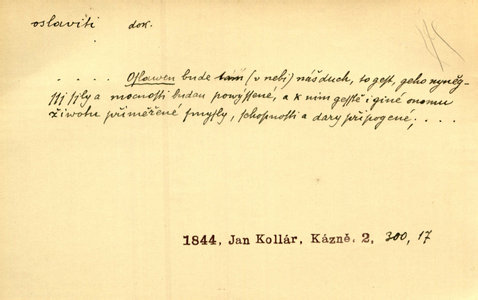 oslaviti dok.
. . . . Oslawen bude tam (v nebi) náš duch, to gest, geho nyněg-
ssj sjly a mocnosti budau powýssené, a k nim gesstě i giné onomu
žiwotu přiměřené smysly, schopnosti a dary připogené; . . . .
1844, Jan Kollár, Kázně. 2, 300, 17